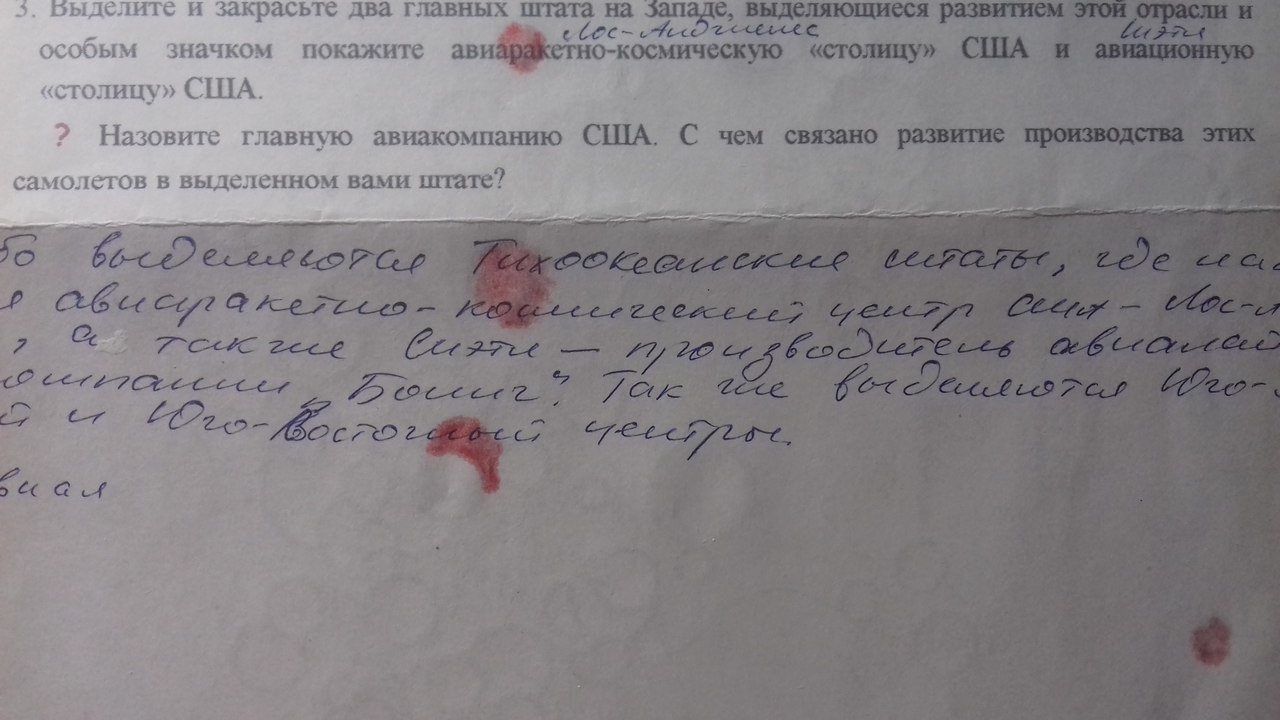 3. Выделите и закрасьте два главных штата на Западе, выделяющиеся развитием этой отрасли и
Лос-Анджелес Сиэтл
особым значком покажите авиаракетно-космическую «столицу» США и авиационную
«столицу» США.
? Назовите главную авиакомпанию США. С чем связано развитие производства этих
самолетов в выделенном вами штате?
бо выделяются Тихоокеанские штаты, где на
я авиаракетно-космический центр сша - Лос-А
, а также Сиэтл — производитель авиалай
омпании „Боинг". Так же выделяются Юго-
й и Юго-Восточный центры.
виал